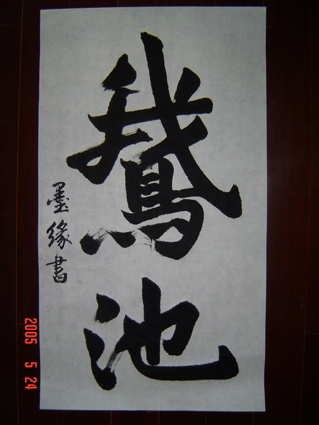 鵞池
墨緣書
2005 5 24